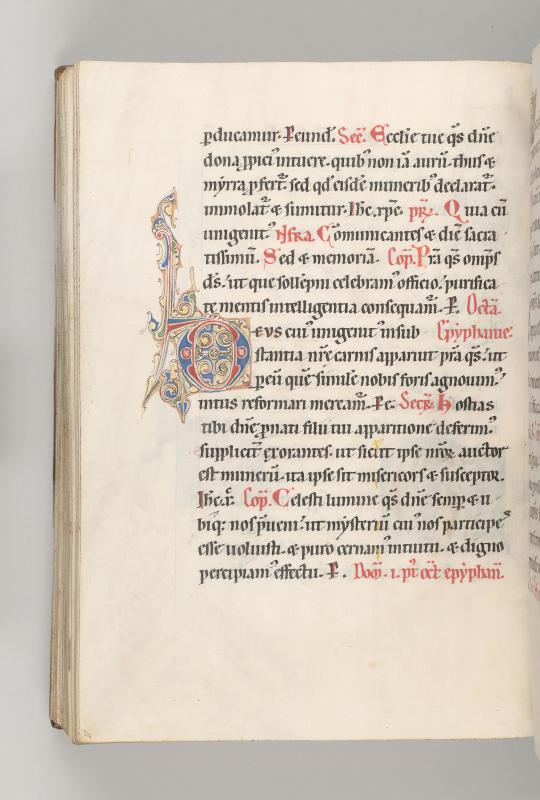 pducamur. P eund̄. Secr̄. Ecclīe tue q̄s dn̄e
dona ꝓpici' intuere. quib' non iā aurū. thus &
myrra ꝓfert̄. sed qd̄ eisdē munerib' declarat̄.
immolat̄ & sumitur. Ihc xpc. prf̄. Quia cū
unigenit' Infra. Cōmunicantes & diē sacra
tissimū. Sed & memoriā. Cop̄. Pr̄a q̄s omp̄s
d̄s. ut que sollēpni celebram' officio. purifica
te mentis intelligentia consequam̄. P. Octā.
Deus cui' unigenit' in sub Epyphanie.
stantia nr̄e carnis apparuit pr̄a q̄s. ut
p eū quē similē nobis foris agnouim'.
intus reformari meream̄. Pe. Secr̄. Hostias
tibi dn̄e ꝓ nati filii tui apparitione deferim'.
supplicit̄ exorantes. ut sicut ipse nr̄or̄ auctor
est munerū. ita ipse sit misericors & susceptor.
Ihc x̄. Cop̄. Celesti lumine q̄s dn̄e semp & u
biq; nos p̄ueni. ut mysteriū cui' nos participe
esse uoluisti. & puro cernam' intuitu. & digno
percipiam' effectu. P. Dom̄. I. p't oct̄ epyphan̄.